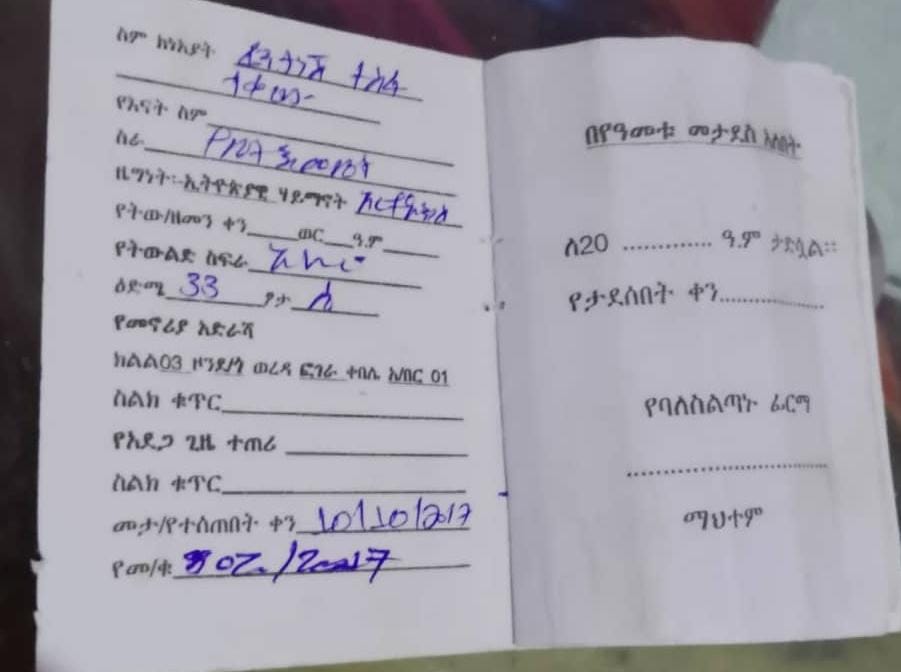 ስም ከነአያት ተስፋ
የእናት ስም
ስራ የቤት እመቤት
ዜግነት፡-ኢትዮጵያዊ ሃይማኖት ኦርቶዶክስ
የትው/ዘመን ቀን____ወር___ዓ.ም____
የትውልድ ስፍራ
ዕድሜ 33 ፆታ ሴ
የመኖሪያ አድራሻ
ክልል03 ዞንደ/ጎ ወረዳ ፎገራ ቀበሌ አ/በር 01
ስልክ ቁጥር
የአደጋ ጊዜ ተጠሪ
ስልክ ቁጥር
መታ/የተሰጠበት ቀን 10/10/2017
የመ/ቁ /2017
በየዓመቱ መታደስ አለበት
ለ20 ............. ዓ.ም ታድሷል።
የታደሰበት ቀን....................
የባለስልጣኑ ፊርማ
....................................
ማህተም